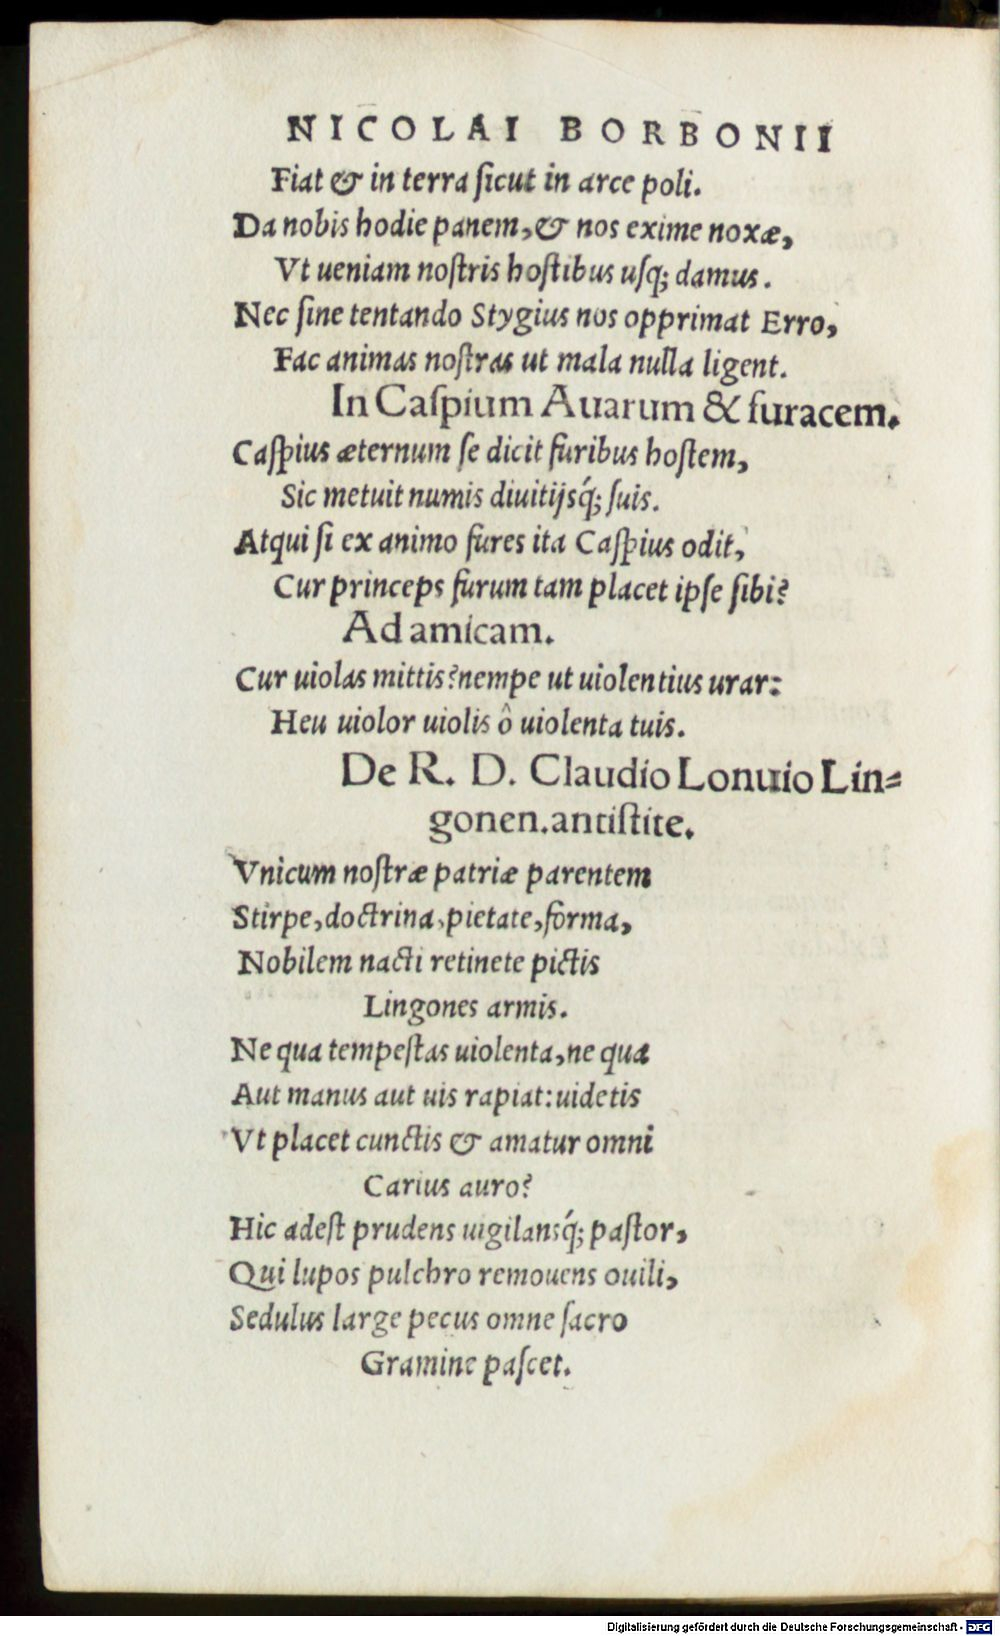 NICOLAI BORBONII
Fiat & in terra ſicut in arce poli.
Da nobis hodie panem, & nos exime noxæ,
Vt ueniam noſtris hoſtibus uſq; damus.
Nec ſine tentando Stygius nos opprimat Erro,
Fac animas noſtras ut mala nulla ligent.
In Caſpium Auarum & furacem.
Caſpius æternum ſe dicit furibus hoſtem,
Sic metuit numis diuitijsq́; ſuis.
Atqui ſi ex animo fures ita Caſpius odit,
Cur princeps furum tam placet ipſe ſibi?
Ad amicam.
Cur uiolas mittis? nempe ut uiolentius urar:
Heu uiolor uiolis ô uiolenta tuis.
De R. D. Claudio Lonuio Lin=
gonen. antiſtite.
Vnicum noſtræ patriæ parentem
Stirpe, doctrina, pietate, forma,
Nobilem nacti retinete pictis
Lingones armis.
Ne qua tempeſtas uiolenta, ne qua
Aut manus aut uis rapiat: uidetis
Vt placet cunctis & amatur omni
Carius auro?
Hic adeſt prudens uigilansq́; paſtor,
Qui lupos pulchro remouens ouili,
Sedulus large pecus omne ſacro
Gramine paſcet.
Digitalisierung gefördert durch die Deutsche Forschungsgemeinschaft - DFG